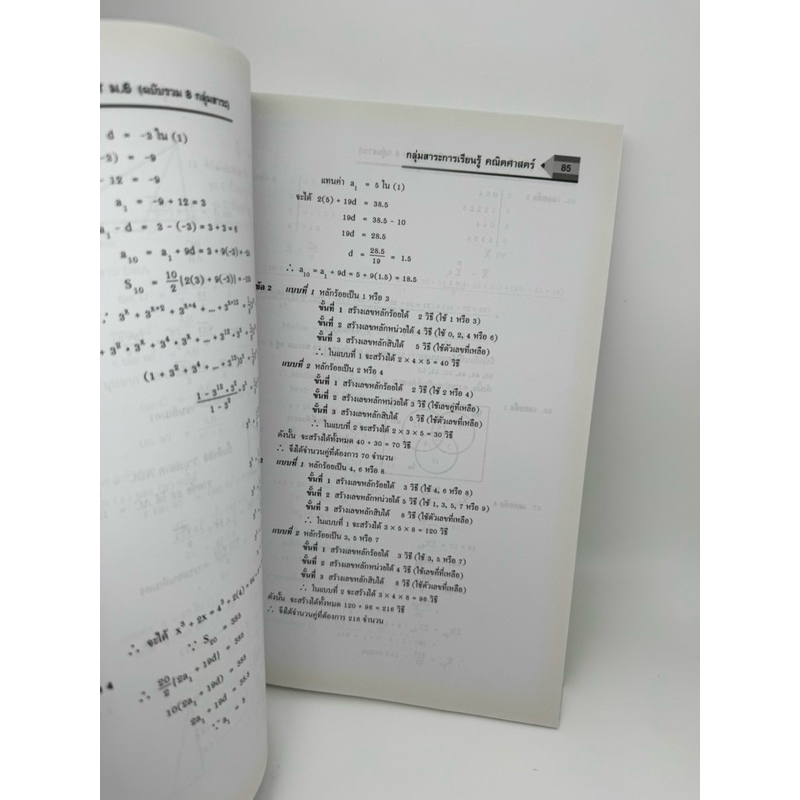 ม.6 (ฉบับรวม 8 กลุ่มสาระ)
d = -3 ใน (1)
= -9
- 12 = -9
a₁ = -9 + 12 = 3
a₁ - d = 3 - (-3) = 3 + 3 = 6
a₁₀ = a₁ + 9d = 3 + 9(-3) =
S₁₀ = 10/2 {2(3) + 9(-3)} =
(1 + 3² + 3⁴ + ... + 3¹²)3ˣ
∴ จะได้ x³ + 2x = 4³ + 2(4)
∵ S₂₀ = 385
∴ 20/2 {2a₁ + 19d} = 385
10(2a₁ + 19d) = 385
2a₁ + 19d = 38.5
∵ a₁ = 5
กลุ่มสาระการเรียนรู้ คณิตศาสตร์ 85
แทนค่า a₁ = 5 ใน (1)
จะได้ 2(5) + 19d = 38.5
19d = 38.5 - 10
19d = 28.5
d = 28.5/19 = 1.5
∴ a₁₀ = a₁ + 9d = 5 + 9(1.5) = 18.5
2 แบบที่ 1 หลักร้อยเป็น 1 หรือ 3
ขั้นที่ 1 สร้างเลขหลักร้อยได้ 2 วิธี (ใช้ 1 หรือ 3)
ขั้นที่ 2 สร้างเลขหลักหน่วยได้ 4 วิธี (ใช้ 0, 2, 4 หรือ 6)
ขั้นที่ 3 สร้างเลขหลักสิบได้ 5 วิธี (ใช้ตัวเลขที่เหลือ)
∴ ในแบบที่ 1 จะสร้างได้ 2 × 4 × 5 = 40 วิธี
แบบที่ 2 หลักร้อยเป็น 2 หรือ 4
ขั้นที่ 1 สร้างเลขหลักร้อยได้ 2 วิธี (ใช้ 2 หรือ 4)
ขั้นที่ 2 สร้างเลขหลักหน่วยได้ 3 วิธี (ใช้เลขคู่ที่เหลือ)
ขั้นที่ 3 สร้างเลขหลักสิบได้ 5 วิธี (ใช้ตัวเลขที่เหลือ)
∴ ในแบบที่ 2 จะสร้างได้ 2 × 3 × 5 = 30 วิธี
ดังนั้น จะสร้างได้ทั้งหมด 40 + 30 = 70 วิธี
∴ จึงได้จำนวนคู่ที่ต้องการ 70 จำนวน
แบบที่ 1 หลักร้อยเป็น 4, 6 หรือ 8
ขั้นที่ 1 สร้างเลขหลักร้อยได้ 3 วิธี (ใช้ 4, 6 หรือ 8)
ขั้นที่ 2 สร้างเลขหลักหน่วยได้ 5 วิธี (ใช้ 1, 3, 5, 7 หรือ 9)
ขั้นที่ 3 สร้างเลขหลักสิบได้ 8 วิธี (ใช้ตัวเลขที่เหลือ)
∴ ในแบบที่ 1 จะสร้างได้ 3 × 5 × 8 = 120 วิธี
แบบที่ 2 หลักร้อยเป็น 3, 5 หรือ 7
ขั้นที่ 1 สร้างเลขหลักร้อยได้ 3 วิธี (ใช้ 3, 5 หรือ 7)
ขั้นที่ 2 สร้างเลขหลักหน่วยได้ 4 วิธี (ใช้เลขคี่ที่เหลือ)
ขั้นที่ 3 สร้างเลขหลักสิบได้ 8 วิธี (ใช้ตัวเลขที่เหลือ)
∴ ในแบบที่ 2 จะสร้างได้ 3 × 4 × 8 = 96 วิธี
ดังนั้น จะสร้างได้ทั้งหมด 120 + 96 = 216 วิธี
∴ จึงได้จำนวนคู่ที่ต้องการ 216 จำนวน